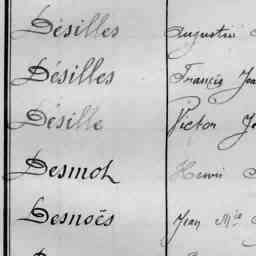 Désilles Augustin
Désilles Francis
Désille Victor
Desmot Henri
Desnoës Jean Mie